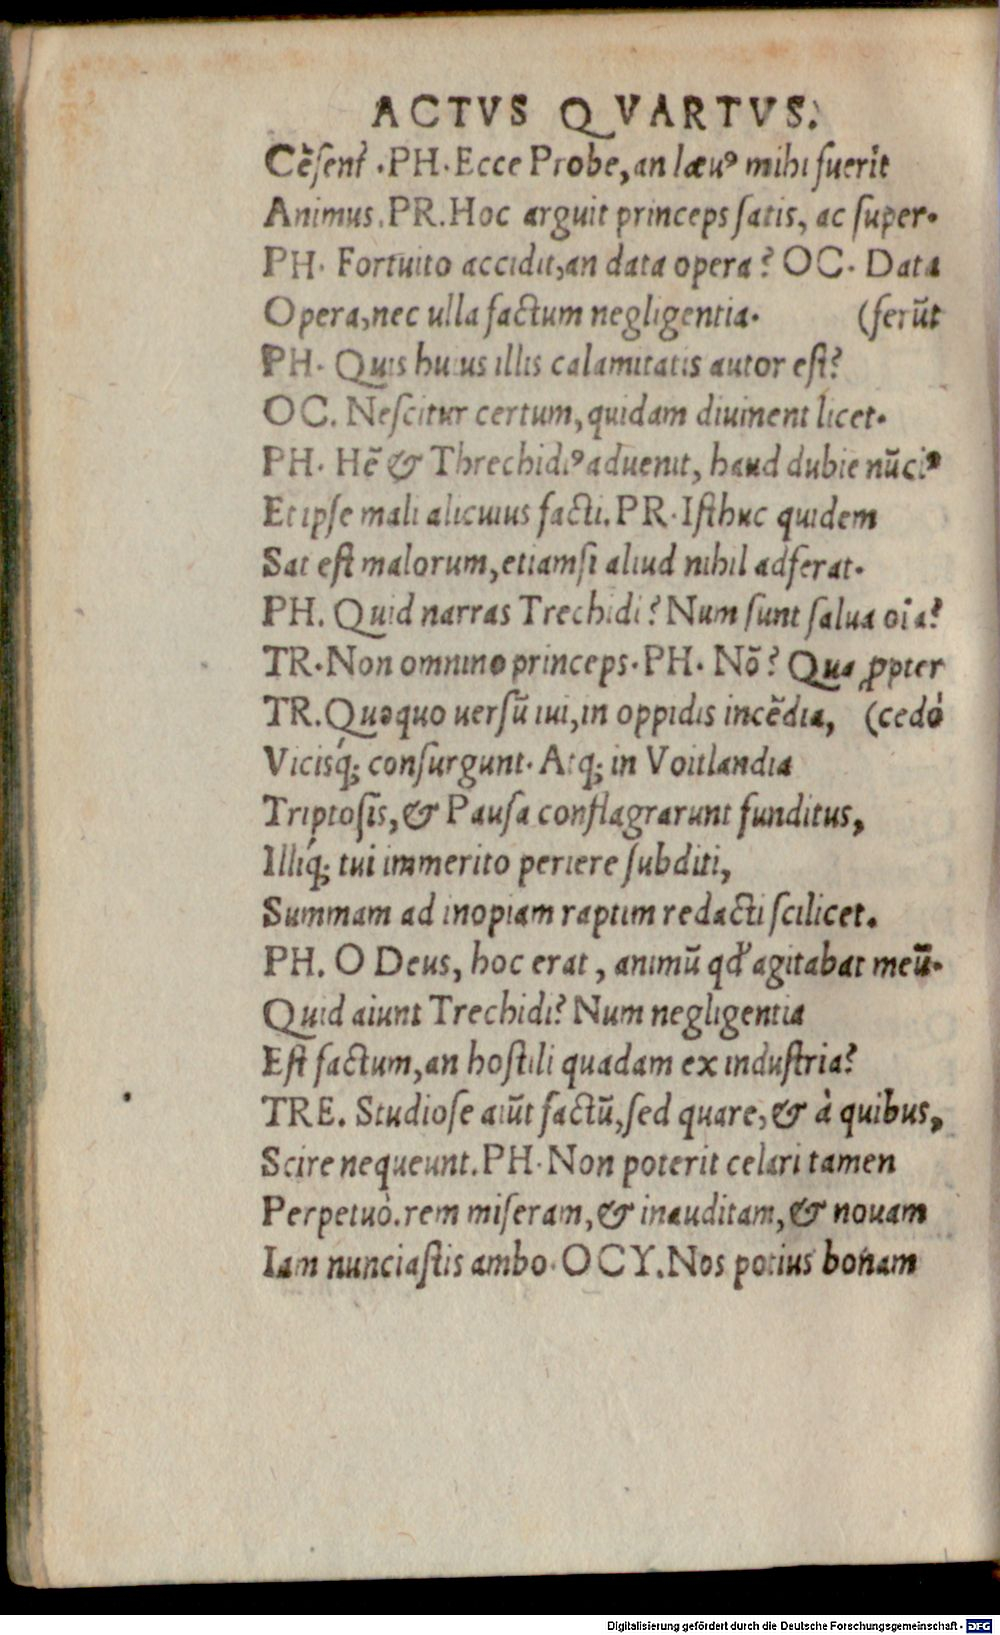 ACTVS QVARTVS.
Cẽsent̃ .PH. Ecce Probe, an læuꝰ mihi fuerit
Animus. PR. Hoc arguit princeps satis, ac super.
PH. Fortuito accidit, an data opera? OC. Data
Opera, nec ulla factum negligentia. (ferũt
PH. Quis huius illis calamitatis autor est?
OC. Nescitur certum, quidam diuinent licet.
PH. Hẽ & Threchidiꝰ aduenit, haud dubie nũciꝰ
Et ipse mali alicuius facti. PR. Isthuc quidem
Sat est malorum, etiamsi aliud nihil adferat.
PH. Quid narras Trechidi? Num sunt salua oīa?
TR. Non omnino princeps. PH. Nõ? Qua ꝓpter
TR. Quoquo uersũ iui, in oppidis incẽdia, (cedò
Vicisq́; consurgunt. Atq; in Voitlandia
Triptosis, & Pausa conflagrarunt funditus,
Illiq́; tui immerito periere subditi,
Summam ad inopiam raptim redacti scilicet.
PH. O Deus, hoc erat, animũ qd̕ agitabat meũ.
Quid aiunt Trechidi? Num negligentia
Est factum, an hostili quadam ex industria?
TRE. Studiose aiũt factũ, sed quare, & à quibus,
Scire nequeunt. PH. Non poterit celari tamen
Perpetuò. rem miseram, & inauditam, & nouam
Iam nunciastis ambo. OCY. Nos potius bonam
Digitalisierung gefördert durch die Deutsche Forschungsgemeinschaft - DFG